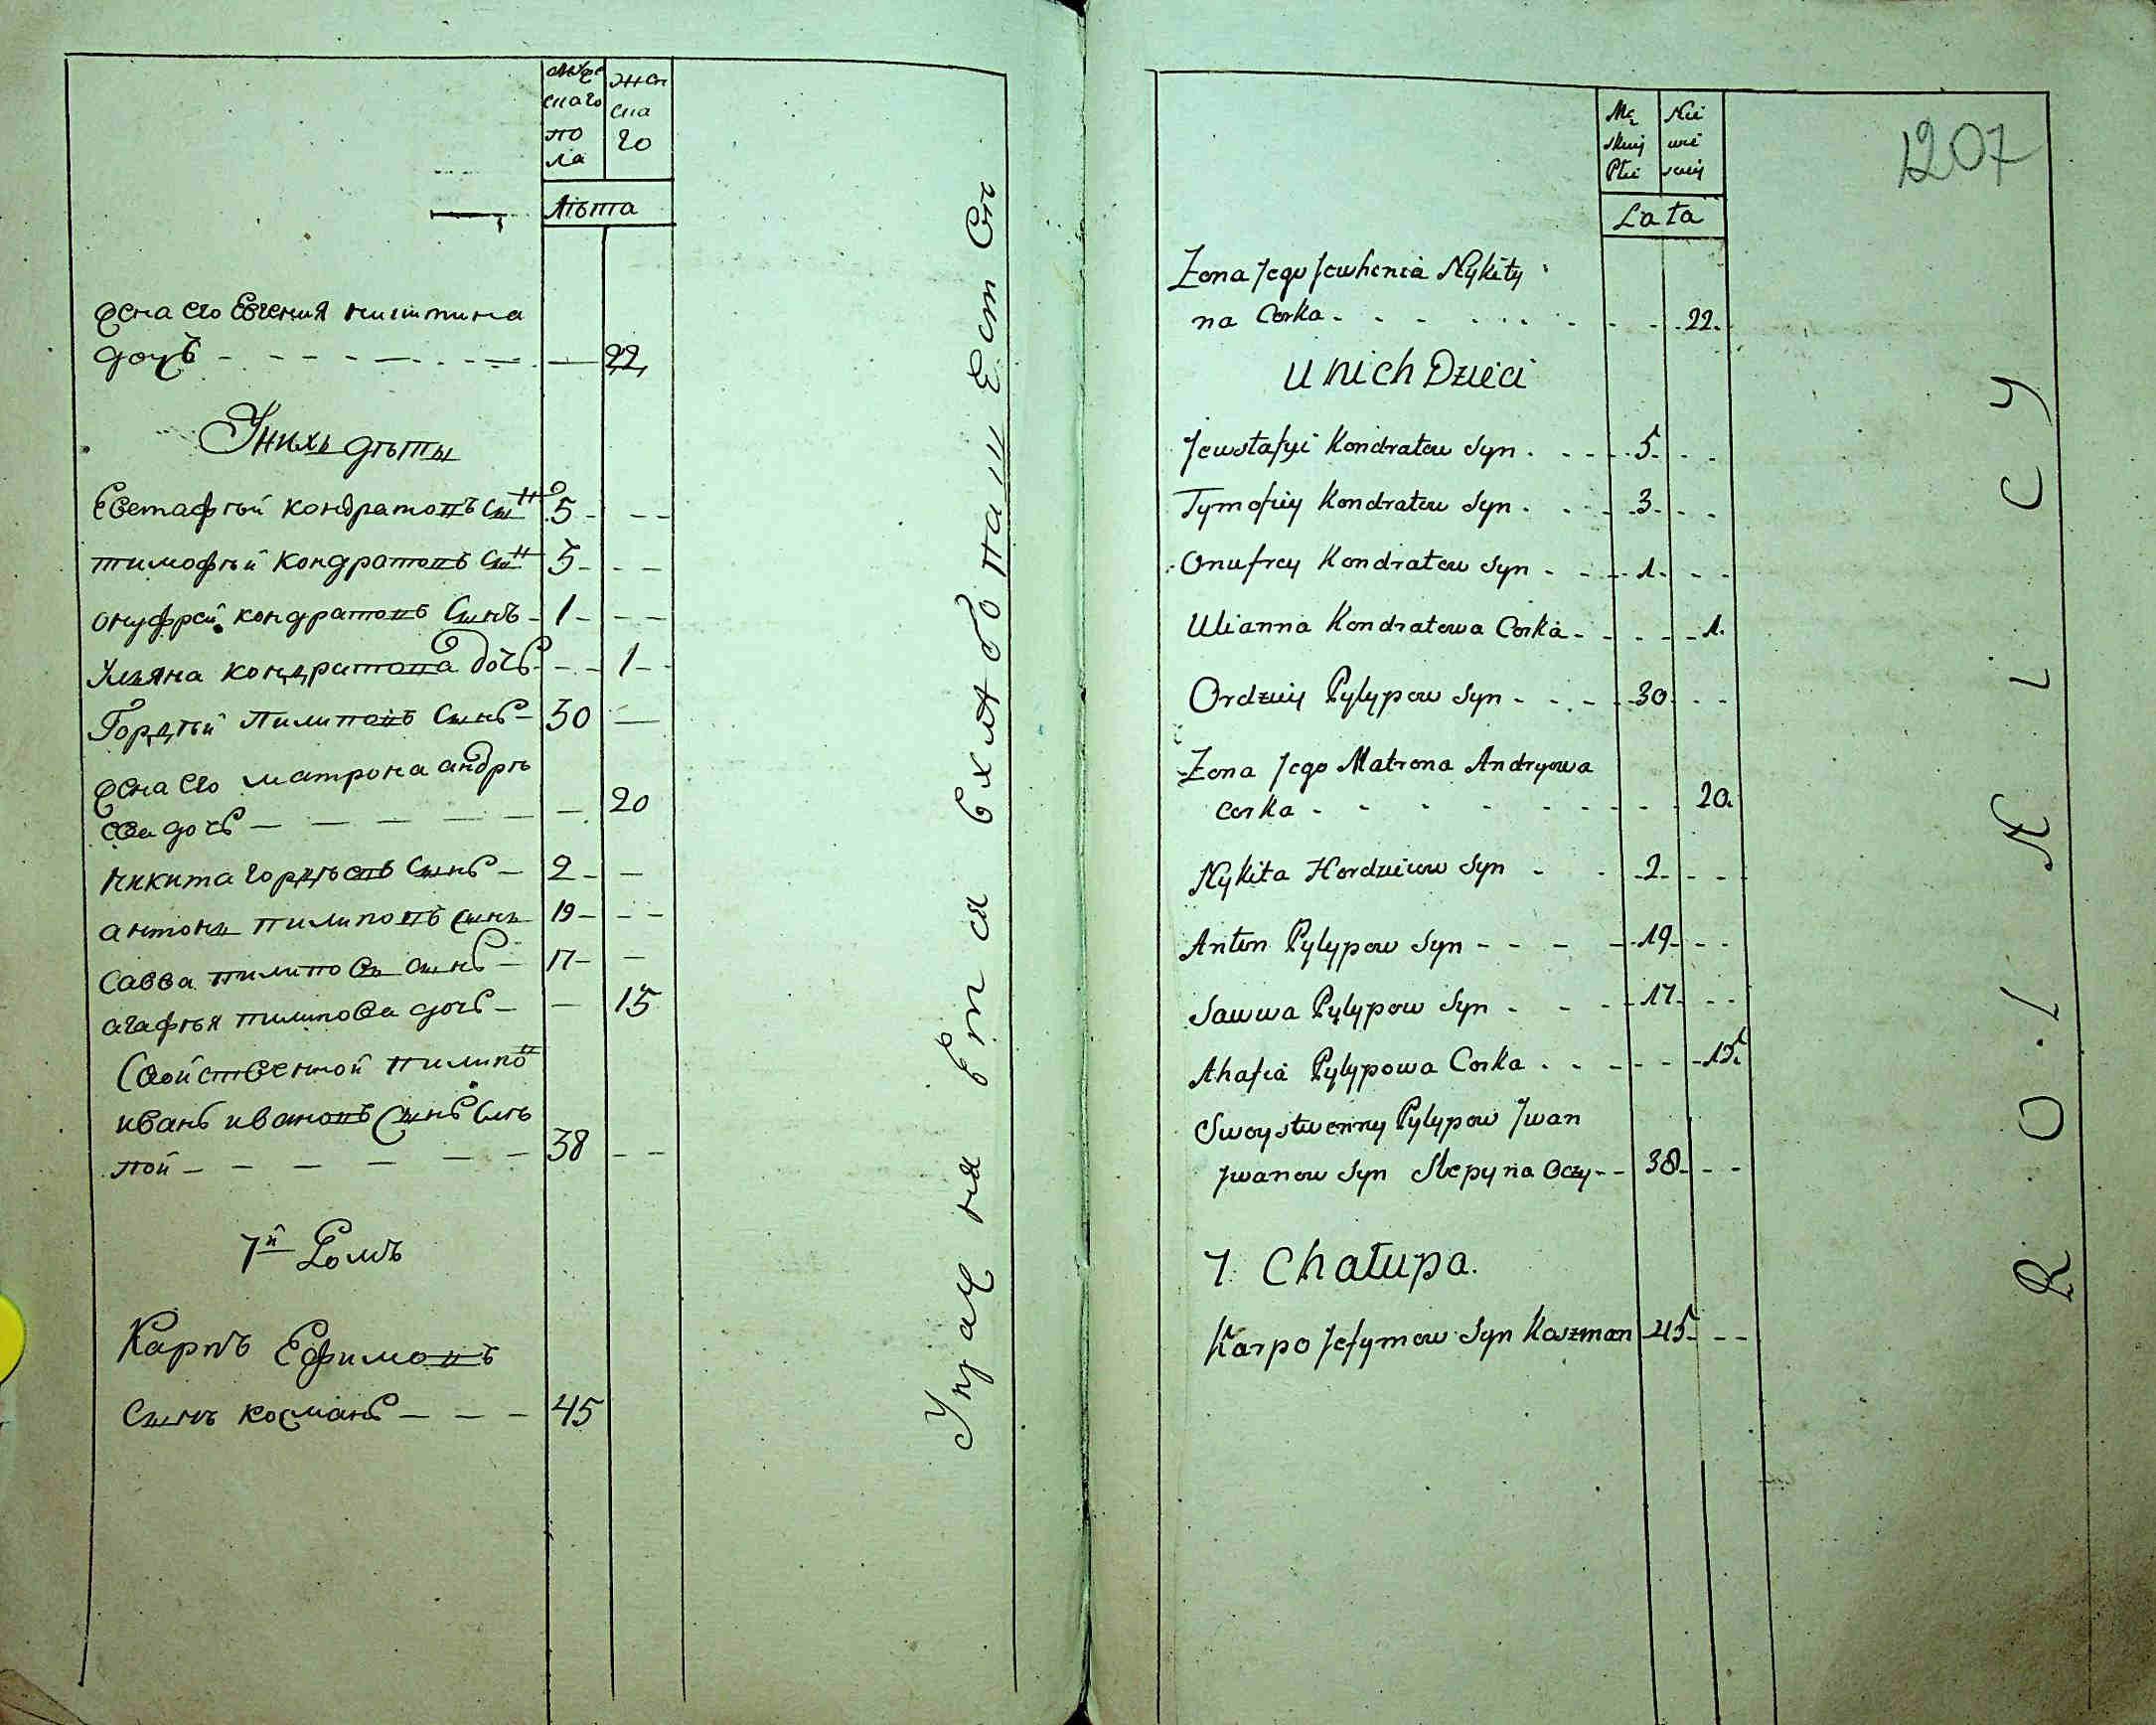 муже
скаго
по
ла
жен
ска
го
лѣта
жена его Евгения никитина
дочъ - - - - - - - 22
Унихъ дѣты
Евстафѣй кондратовъ сынъ 5 - - -
тимофѣй кондратовъ сынъ 3 - - -
онуфрей кондратовъ Сынъ - 1 - - -
Ульяна кондратова дочь - - 1 - -
Гордѣй Пилиповъ Сынъ - 30 -
жена его матрона андрѣ
ева дочь - - - - - - 20
никита гордѣевъ Сынъ - 2 - -
антонъ пилиповъ сынъ 19 - - -
Савва пилиповъ сынъ - 17 - -
агафѣя пилипова дочь - - 15
Свойственной пилипов
иванъ ивановъ Сынъ Слѣ
пой - - - - - - 38 - -
7й Домъ
Карпъ Ефимовъ
Сынъ косманъ - - - 45
Упраж ня ет ся в хлѣбопаш Ест вѣ
1207
Mę
skiej
Płci
Nie
wie
sciej
Lata
Zona Jego Jewhenia Nykity
na Corka - - - - - - - 22.
U nich Dzieci
Jewstafyi Kondratew Syn - - - 5 - -
Tymofiey Kondratew Syn - - - 3 - -
Onufrey Kondratew Syn - - - 1 - -
Ulianna Kondratowa Corka - - - - 1.
Ordziey Pylypow Syn - - - 30 - -
Zona Jego Matrona Andryowa
Corka - - - - - - - 20.
Nykita Hordzieiow Syn - - 2 - - -
Anton Pylypow Syn - - - 19 - -
Sawwa Pylypow Syn - - - 17 - -
Ahafia Pylypowa Corka - - - - 15.
Swoystwenny Pylypow Jwan
Jwanow Syn Slepy na Oczy - - 38 - -
7 Chałupa.
Karpo Jefymow Syn Kaszman 45 - -
R O L N I C Y